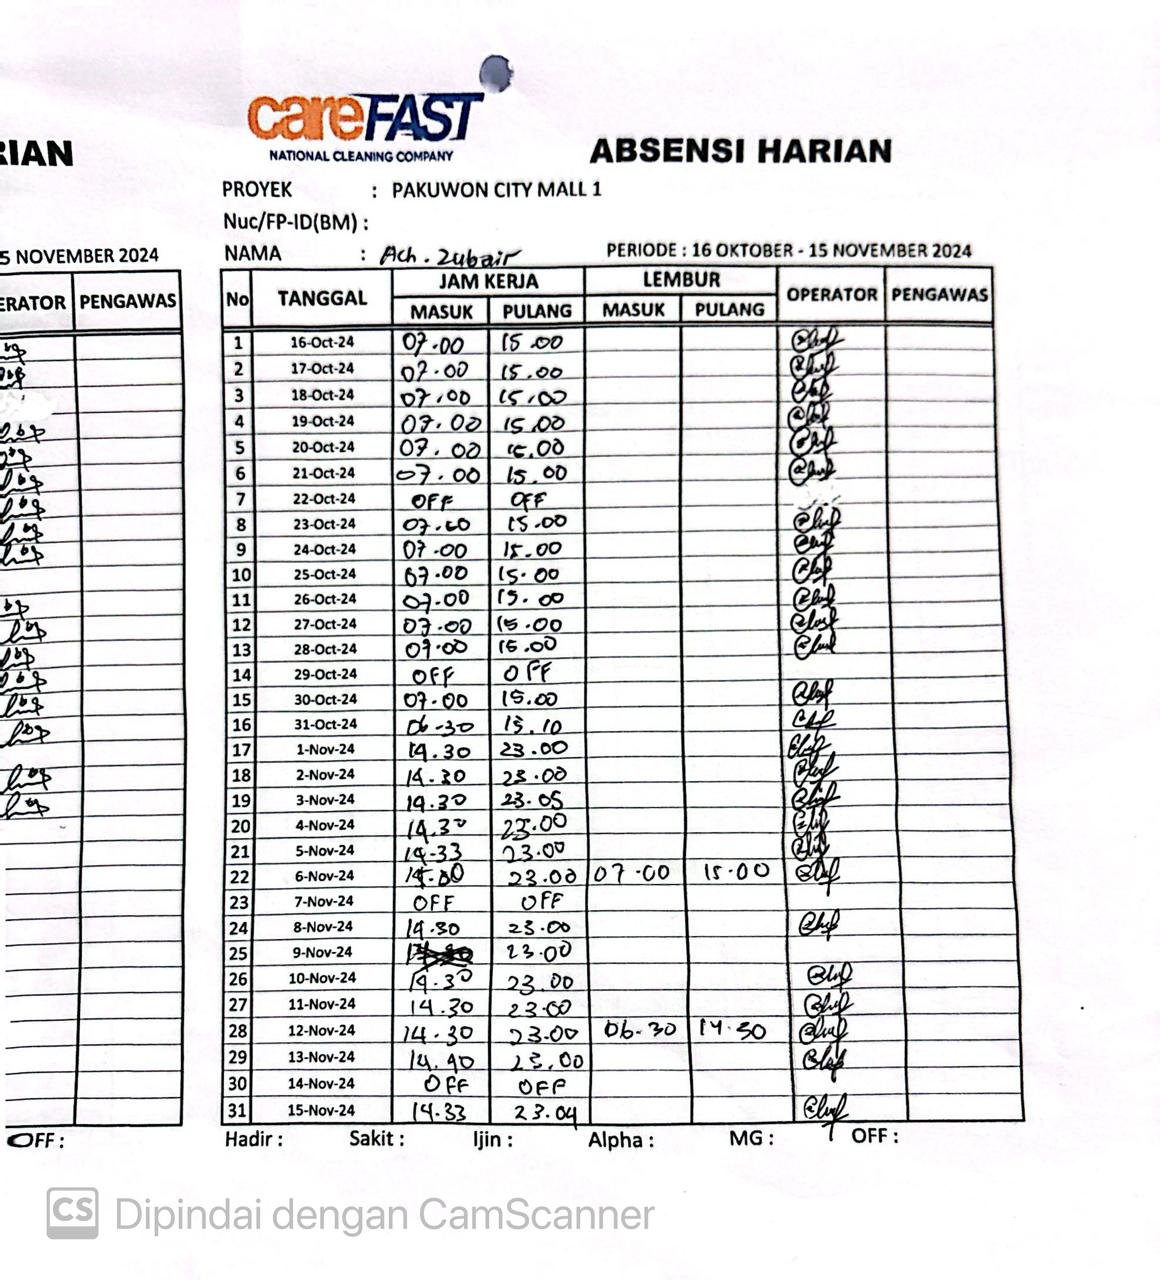 careFAST
NATIONAL CLEANING COMPANY
RIAN
ABSENSI HARIAN
PROYEK : PAKUWON CITY MALL 1
Nuc/FP-ID(BM) :
5 NOVEMBER 2024
NAMA : Ach. Zubair PERIODE : 16 OKTOBER - 15 NOVEMBER 2024
ERATOR PENGAWAS
No TANGGAL JAM KERJA LEMBUR OPERATOR PENGAWAS
MASUK PULANG MASUK PULANG
1 16-Oct-24 07.00 15.00
2 17-Oct-24 07.00 15.00
3 18-Oct-24 07.00 15.00
4 19-Oct-24 07.00 15.00
5 20-Oct-24 07.00 15.00
6 21-Oct-24 07.00 15.00
7 22-Oct-24 OFF OFF
8 23-Oct-24 07.00 15.00
9 24-Oct-24 07.00 15.00
10 25-Oct-24 07.00 15.00
11 26-Oct-24 07.00 15.00
12 27-Oct-24 07.00 15.00
13 28-Oct-24 07.00 15.00
14 29-Oct-24 OFF OFF
15 30-Oct-24 07.00 15.00
16 31-Oct-24 06-30 15.10
17 1-Nov-24 14.30 23.00
18 2-Nov-24 14.30 23.00
19 3-Nov-24 14.30 23.05
20 4-Nov-24 14.30 23.00
21 5-Nov-24 14-33 23.00
22 6-Nov-24 23.00 07.00 15.00
23 7-Nov-24 OFF OFF
24 8-Nov-24 14.30 23.00
25 9-Nov-24 23.00
26 10-Nov-24 14.30 23.00
27 11-Nov-24 14.30 23.00
28 12-Nov-24 14.30 23.00 06-30 14.30
29 13-Nov-24 14.40 23.00
30 14-Nov-24 OFF OFF
31 15-Nov-24 14.33 23.04
OFF :
Hadir : Sakit : Ijin : Alpha : MG : OFF :
CS Dipindai dengan CamScanner